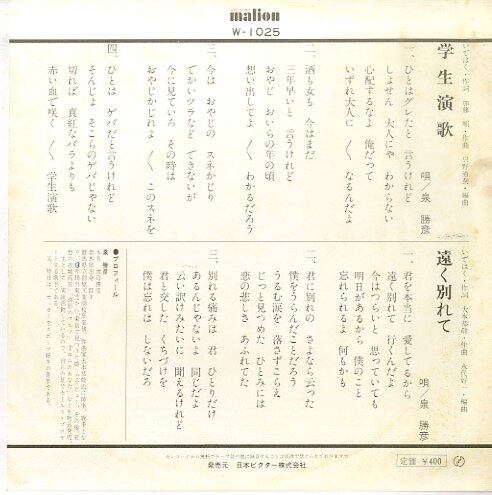 malion
W-1025
いではく・作詞 加藤 順・作曲 只野通泰・編曲
学生演歌
唄／泉 勝彦
一、ひとはグレたと 言うけれど
しょせん 大人にゃ わからない
心配するなよ 俺だって
いずれ大人に 〱 なるんだよ
二、酒も女も 今はまだ
三年早いと 言うけれど
おやじ おいらの年の頃
想い出してよ 〱 わかるだろう
三、今は おやじの スネかじり
でかいツラなど できないが
今に見ていろ その時は
おやじかじれよ 〱 このスネを
四、ひとは ゲバだと言うけれど
そんじょ そこらのゲバじゃない
切れば 真紅なバラよりも
赤い血で咲く 〱 学生演歌
いではく・作詞
遠く別れて
唄／泉 勝彦
一、君を本当に 愛してるから
遠く別れて 行くんだよ
今はつらいと 思っていても
明日があるから 僕のこと
忘れられるよ 何もかも
二、君に別れの さよなら云った
僕をうらんだことだろう
うるむ涙を 落さずこらえ
じっと見つめた ひとみには
恋の悲しさ あふれてた
三、別れる痛みは 君 ひとりだけ
あるんじゃないよ 同じだよ
云い訳みたいに 聞えるけれど
君と交した くちづけを
僕は忘れは しないだろ
●プロフィール
泉 勝彦
発売元 日本ビクター株式会社
定価 ¥400